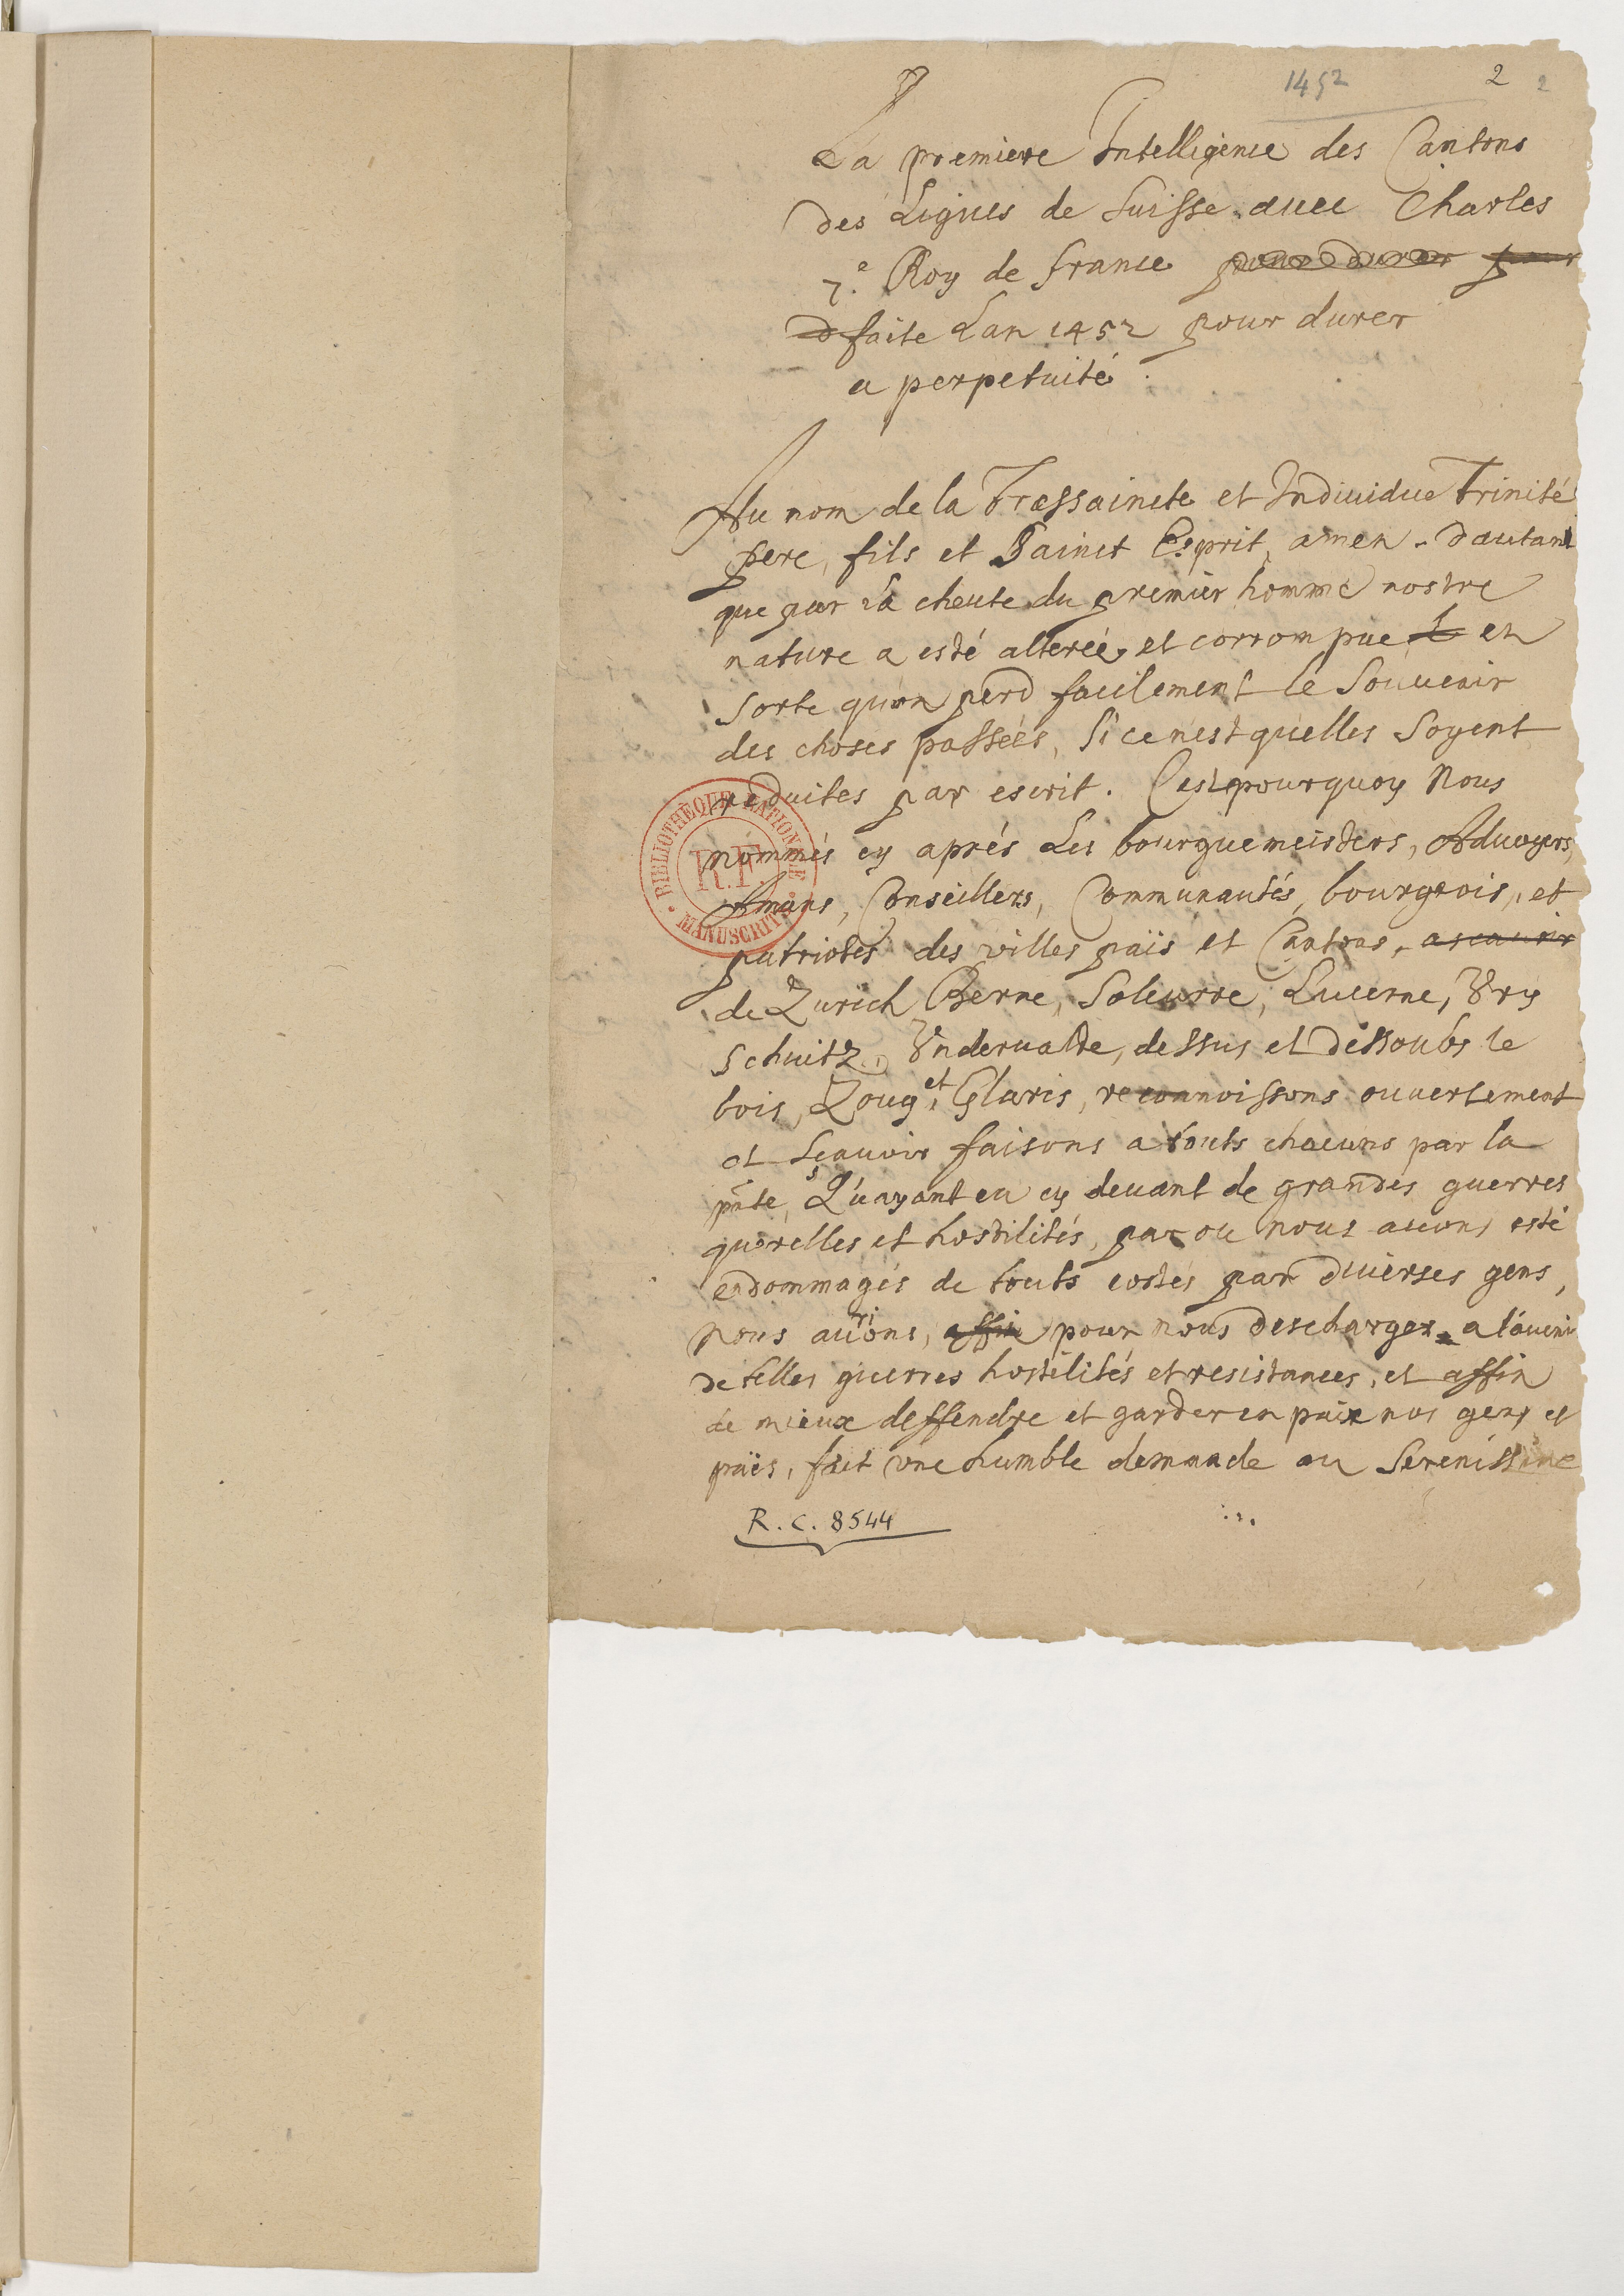 1452
2 2
La premiere Intelligence des Cantons
des Ligues de Suisse. auec Charles
7.e Roy de france pour durer pour
d faite Lan 1452 pour durer
a perpetuité.
Au nom de la Tressaincte et Indiuidue Trinité
pere, fils et Sainct Esprit, amen. dautant
que par la cheute du premier homme nostre
nature a esté alterée, et corrompue en
sorte qu'on perd facilement le Souuenir
des choses passées, Si ce n'est qu'elles Soyent
reduites par escrit. Cest pourquoy Nous
nommés cy aprés Les bourguemeisters, Aduoyers,
Amans, Conseillers, Communautés, bourgeois, et
patriotes des villes païs et Cantons, ascauoir
de Zurich Berne, Soleurre, Lucerne, Vry
Schuitz, Vnderualde, dessus et dessoubs le
bois, Zoug, et Glaris, reconnoissons ouuertement
et Sçauoir faisons a touts chacuns par la
pnte, Qu'ayant eu cy deuant de grandes guerres
querelles et hostilités, par ou nous auons esté
endommagés de touts costés par diuerses gens,
Nous aurions, affin pour nous descharger a l'aueni
de telles guerres hostilités et resistances, et affin
de mieux deffendre et garder en paix nos gens et
païs, fait vne humble demande au Serenissime
R. C. 8544
BIBLIOTHEQUE NATIONALE
R.F.
MANUSCRITS